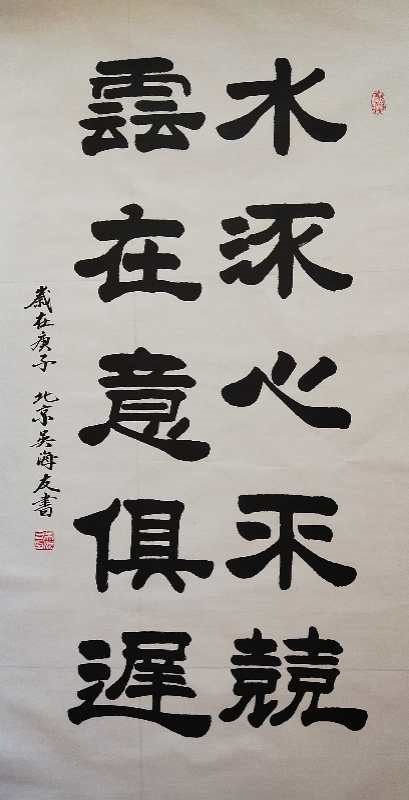 水流心不競
雲在意俱遲
歲在庚子 北京吴海友書